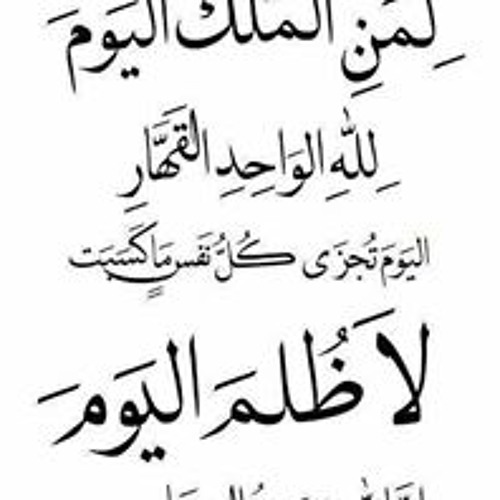 لِمَنِ الْمُلْكُ الْيَوْمَ
لِلَّهِ الوَاحِدِ القَهَّارِ
اليَوْمَ تُجْزَى كُلُّ نَفْسٍ مَا كَسَبَت
لَا ظُلْمَ اليَوْمَ